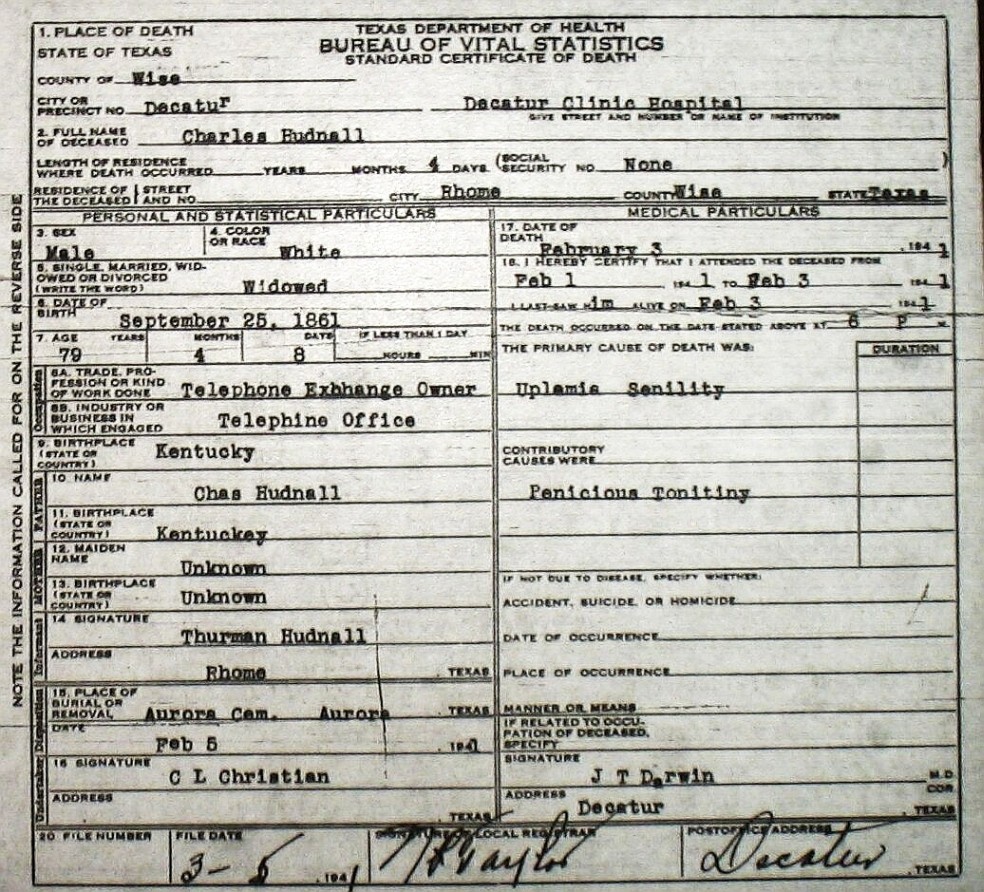 TEXAS DEPARTMENT OF HEALTH
BUREAU OF VITAL STATISTICS
STANDARD CERTIFICATE OF DEATH
1. PLACE OF DEATH
STATE OF TEXAS
COUNTY OF Wise
CITY OR PRECINCT NO. Decatur Decatur Clinic Hospital
GIVE STREET AND NUMBER OR NAME OF INSTITUTION
2. FULL NAME OF DECEASED Charles Hudnall
LENGTH OF RESIDENCE WHERE DEATH OCCURRED YEARS MONTHS 4 DAYS (SOCIAL SECURITY NO. None )
RESIDENCE OF THE DECEASED STREET AND NO. CITY Rhome COUNTY Wise STATE Texas
PERSONAL AND STATISTICAL PARTICULARS
3. SEX Male
4. COLOR OR RACE White
5. SINGLE, MARRIED, WIDOWED OR DIVORCED (WRITE THE WORD) Widowed
6. DATE OF BIRTH September 25, 1861
7. AGE YEARS MONTHS DAYS IF LESS THAN 1 DAY
79 4 8 HOURS MIN
Occupation
8A. TRADE, PROFESSION OR KIND OF WORK DONE Telephone Exbhange Owner
8B. INDUSTRY OR BUSINESS IN WHICH ENGAGED Telephine Office
9. BIRTHPLACE (STATE OR COUNTRY) Kentucky
FATHER
10. NAME Chas Hudnall
11. BIRTHPLACE (STATE OR COUNTRY) Kentuckey
MOTHER
12. MAIDEN NAME Unknown
13. BIRTHPLACE (STATE OR COUNTRY) Unknown
Informant
14 SIGNATURE Thurman Hudnall
ADDRESS Rhome , TEXAS
Disposition
15. PLACE OF BURIAL OR REMOVAL Aurora Cem. Aurora TEXAS
DATE Feb 5 , 1941
Undertaker
16 SIGNATURE C L Christian
ADDRESS , TEXAS
MEDICAL PARTICULARS
17. DATE OF DEATH February 3 , 1941
18. I HEREBY CERTIFY THAT I ATTENDED THE DECEASED FROM
Feb 1 1941 TO Feb 3 1941
I LAST SAW Him ALIVE ON Feb 3 1941
THE DEATH OCCURRED ON THE DATE STATED ABOVE AT 6 P M.
THE PRIMARY CAUSE OF DEATH WAS: DURATION
Uplamia Senility
CONTRIBUTORY CAUSES WERE
Penicious Tonitiny
IF NOT DUE TO DISEASE, SPECIFY WHETHER:
ACCIDENT, SUICIDE, OR HOMICIDE
DATE OF OCCURRENCE
PLACE OF OCCURRENCE
MANNER OR MEANS
IF RELATED TO OCCUPATION OF DECEASED, SPECIFY
SIGNATURE J T Darwin M.D. COR.
ADDRESS Decatur , TEXAS
20. FILE NUMBER
FILE DATE 3-5 , 1941
SIGNATURE OF LOCAL REGISTRAR Taylor
POSTOFFICE ADDRESS Decatur , TEXAS
NOTE THE INFORMATION CALLED FOR ON THE REVERSE SIDE